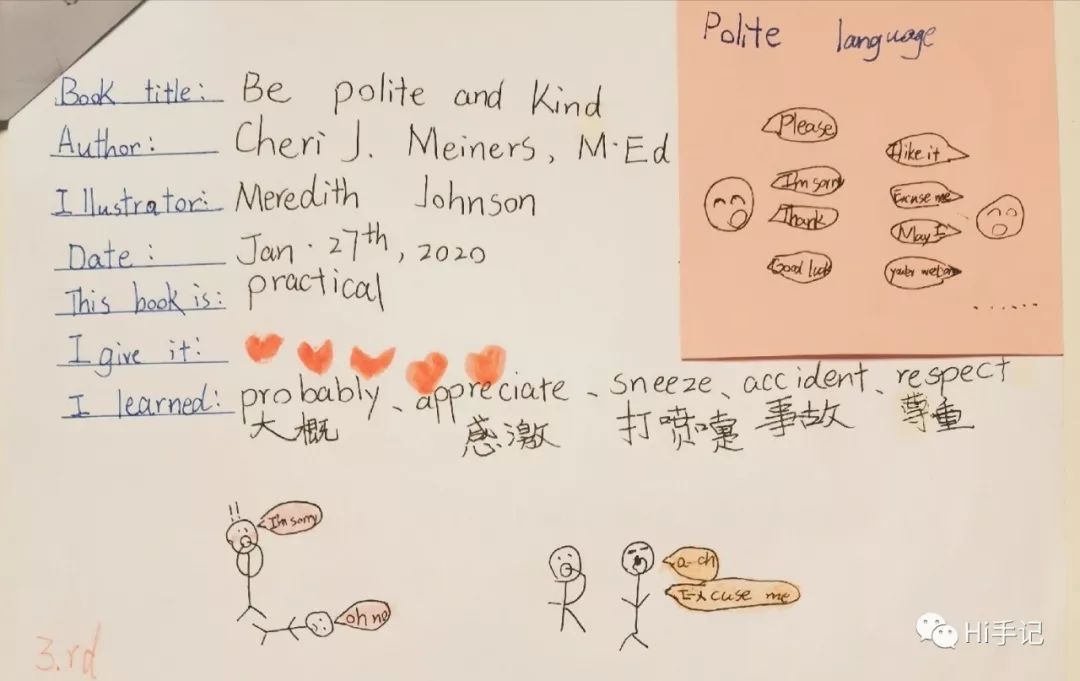 Book title: Be polite and Kind
Author: Cheri J. Meiners, M·Ed
Illustrator: Meredith Johnson
Date: Jan·27th, 2020
This book is: practical
I give it:
I learned: probably、appreciate、sneeze、accident、respect
大概 感激 打喷嚏 事故 尊重
Polite language
Please
I'm sorry
Thank
Good luck
I like it
Excuse me
May I
......
!!
I'm sorry
oh no
a-ch
Excuse me
3.rd
Hi手记